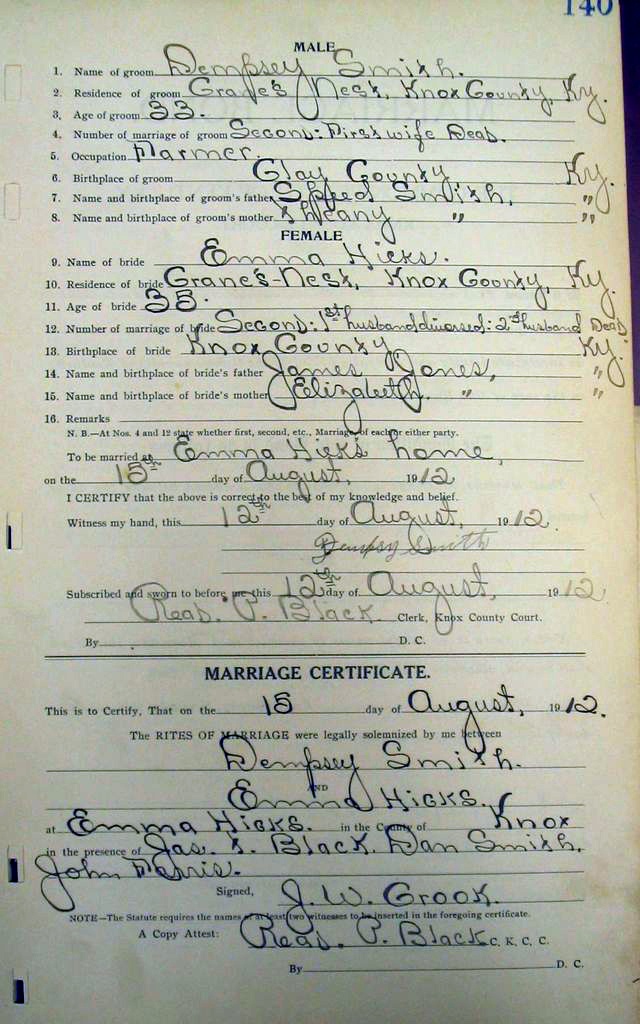 140
MALE
1. Name of groom Dempsey Smith.
2. Residence of groom Crane's Nest, Knox County, Ky.
3. Age of groom 33.
4. Number of marriage of groom Second: First wife Dead.
5. Occupation Farmer.
6. Birthplace of groom Clay County Ky.
7. Name and birthplace of groom's father Speed Smith, "
8. Name and birthplace of groom's mother " "
FEMALE
9. Name of bride Emma Hicks.
10. Residence of bride Crane's-Nest, Knox County, Ky.
11. Age of bride 35.
12. Number of marriage of bride Second: 1st husband divorsed: 2nd husband Dead
13. Birthplace of bride Knox County Ky.
14. Name and birthplace of bride's father James Jones, "
15. Name and birthplace of bride's mother Elizabeth. " "
16. Remarks
N. B.—At Nos. 4 and 12 state whether first, second, etc., Marriage of each or either party.
To be married at Emma Hicks home,
on the 15th day of August, 1912
I CERTIFY that the above is correct to the best of my knowledge and belief.
Witness my hand, this 12th day of August, 1912.
Dempsy Smith
Subscribed and sworn to before me this 12th day of August, 1912
Read. P. Black Clerk, Knox County Court.
By D. C.
MARRIAGE CERTIFICATE.
This is to Certify, That on the 15 day of August, 1912.
The RITES OF MARRIAGE were legally solemnized by me between
Dempsey Smith.
AND
Emma Hicks.
at Emma Hicks. in the County of Knox
in the presence of Jas. S. Black. Dan Smith.
John Farris.
Signed, J. W. Crook.
NOTE—The Statute requires the names of at least two witnesses to be inserted in the foregoing certificate.
A Copy Attest: Read. P. Black C. K. C. C.
By D. C.